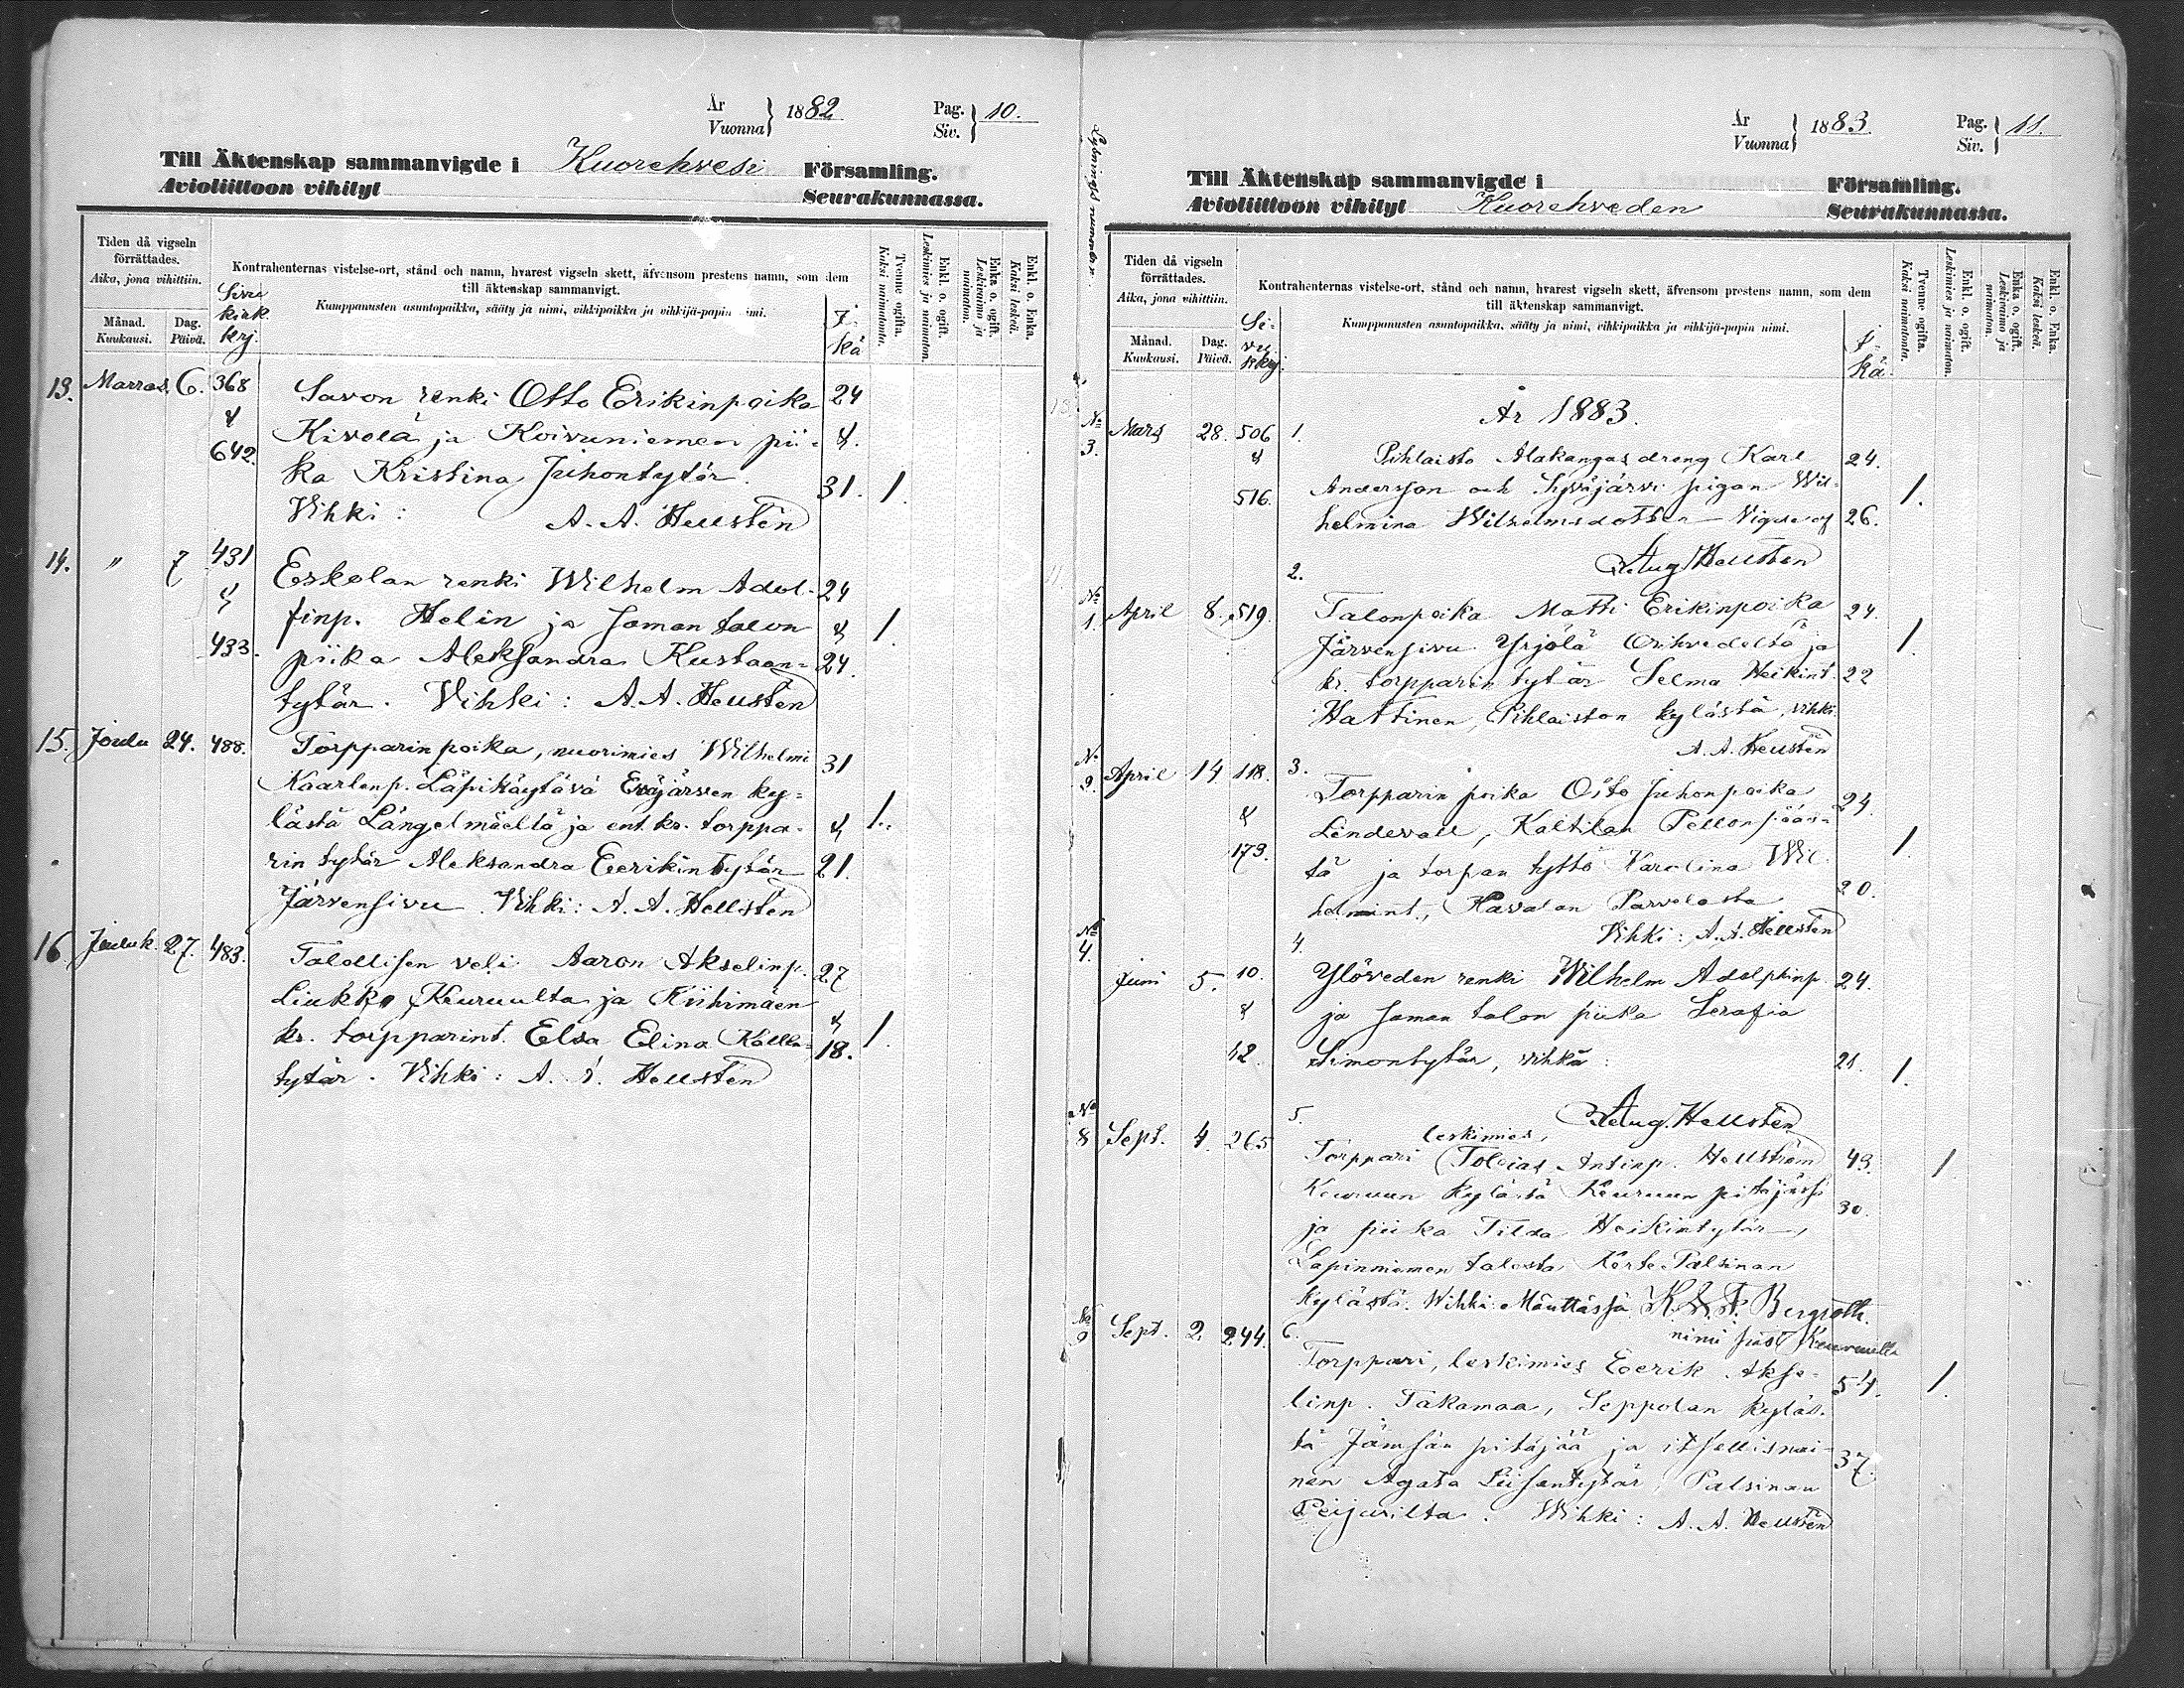 År
Vuonna } 1882 Pag. Siv. } 10.
Till Äktenskap sammanvigde i Kuorehvesi Församling.
Avioliittoon vihityt Seurakunnassa.
Tiden då vigseln förrättades.
Aika, jona vihittiin.
Månad. Kuukausi.
Dag. Päivä.
Sivu kirk. krj.
Kontrahenternas vistelse-ort, stånd och namn, hvarest vigseln skett, äfvensom prestens namn, som dem
till äktenskap sammanvigt.
Kumppanusten asuntopaikka, sääty ja nimi, vihkipaikka ja vihkijä-papin nimi.
I-kä
Tvenne ogifta. Kaksi naimatonta.
Enkl. o. ogift. Leskimies ja naimaton.
Enka o. ogift. Leskivaimo ja naimaton.
Enkl. o. Enka. Kaksi leskeä.
13. Marras. 6. 368 Savon renki Otto Erikinpoika 24
& Kivelä ja Koivuniemen pii- &
642. ka Kristina Juhontytär. 31. 1.
Vihki: A. A. Hellsten
14. " 7 431 Eskolan renki Wilhelm Adol- 24
& finp. Helin ja saman talon & 1.
433. piika Aleksandra Kustaan- 24.
tytär. Vihki: A. A. Hellsten
15. Joulu 24. 488. Torpparin poika, nuorimies Wilhelmi 31
Kaarlenp. Läpikäytävä Eräjärven ky-
lästä Längelmäeltä ja ent. kr. torppa- & 1.
rin tytär Aleksandra Eerikintytär 21.
Järvensivu. Vihki: A. A. Hellsten
16. Jouluk. 27. 483. Talollisen veli Aaron Akselinp. 27
Liukko, Keuruulta ja Riihimäen &
kr. torpparint. Elsa Elina Kalle- 18. 1.
tytär. Vihki: A. A. Hellsten
År
Vuonna } 1883. Pag. Siv. } 11.
Till Äktenskap sammanvigde i Församling.
Avioliittoon vihityt Kuorehveden Seurakunnassa.
Lysnings nummer.
Tiden då vigseln förrättades.
Aika, jona vihittiin.
Månad. Kuukausi.
Dag. Päivä.
Si-vu kkrj.
Kontrahenternas vistelse-ort, stånd och namn, hvarest vigseln skett, äfvensom prestens namn, som dem
till äktenskap sammanvigt.
Kumppanusten asuntopaikka, sääty ja nimi, vihkipaikka ja vihkijä-papin nimi.
I-kä
Tvenne ogifta. Kaksi naimatonta.
Enkl. o. ogift. Leskimies ja naimaton.
Enka o. ogift. Leskivaimo ja naimaton.
Enkl. o. Enka. Kaksi leskeä.
År 1883.
No 3. Mars 28. 506 1.
& Pihlaisto Alakangas dreng Karl 24.
516. Andersson och Syväjärvi pigan Wil- 1.
helmina Wilhelmsdotter Vigde af 26.
Aug. Hellsten
2.
No 1. April 8. 519. Talonpoika Matti Erikinpoika 24.
Järvensivu Yrjölä Orihvedeltä ja 1.
kr. torpparin tytär Selma Heikint. 22
Hattinen, Pihlaiston kylästä, vihki
A. A. Hellsten
No 2. April 14 118. 3.
& Torpparin poika Otto Juhonpoika 24.
Lindevall, Kaltilan Pellonpääs-
173. tä ja torpan tyttö Karolina Wil- 1.
helmint., Havalan Parvelasta 20.
Vihki: A. A. Hellsten
No 4. 4.
Juni 5. 10. Ylöveden renki Wilhelm Adolphinp. 24.
& ja saman talon piika Serafia
12. Simontytär, vihkä: 21. 1.
Aug. Hellsten
5.
No 8 Sept. 4. 265 leskimies,
Torppari (Tobias Antinp. Hellström 43. 1
Keuruun kylästä Keuruun pitäjässä
ja piika Tilda Heikintytär, 30.
Lapinniemen talosta Kerte-Palsinan
kylästä. Vihki Mänttässä K. & F. Bergroth.
nimi Keuruulla
No 9 Sept. 2. 244. 6.
Torppari, leskimies Eerik Akse- 54. 1.
linp. Takamaa, Seppolan kyläs-
tä Jämsän pitäjää ja itsellisnai-
nen Agata Liisantytär, Palsinan 37.
Peijarilta. Vihki: A. A. Hellsten